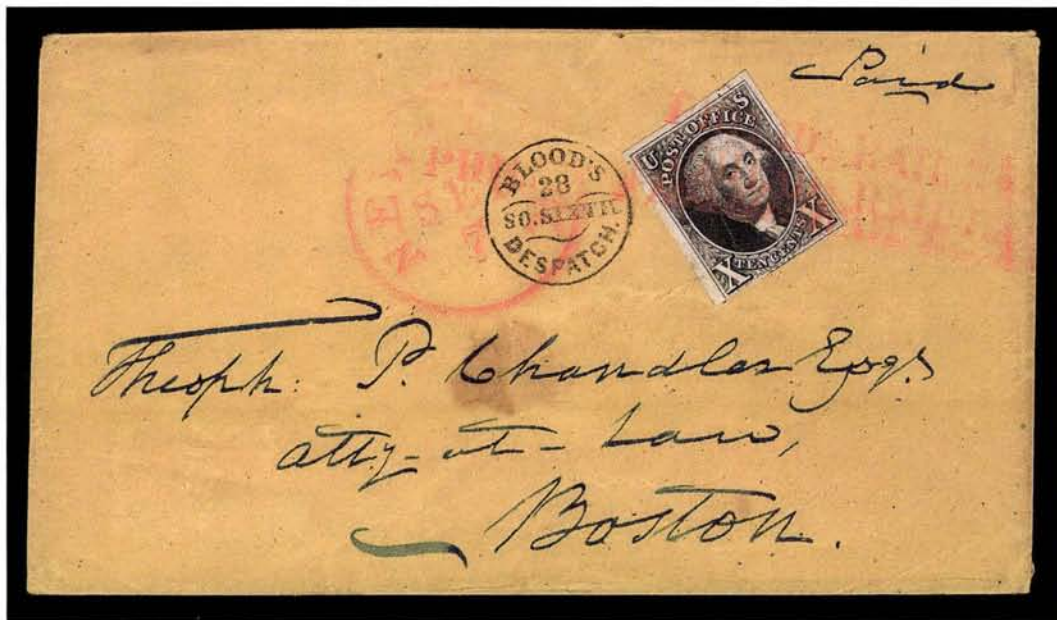 Paid
BLOOD'S
28
SO. SIXTH
DESPATCH.
U S
POST OFFICE
X TEN CENTS X
Theoph: P. Chandler Esq.
atty-at-Law,
Boston.